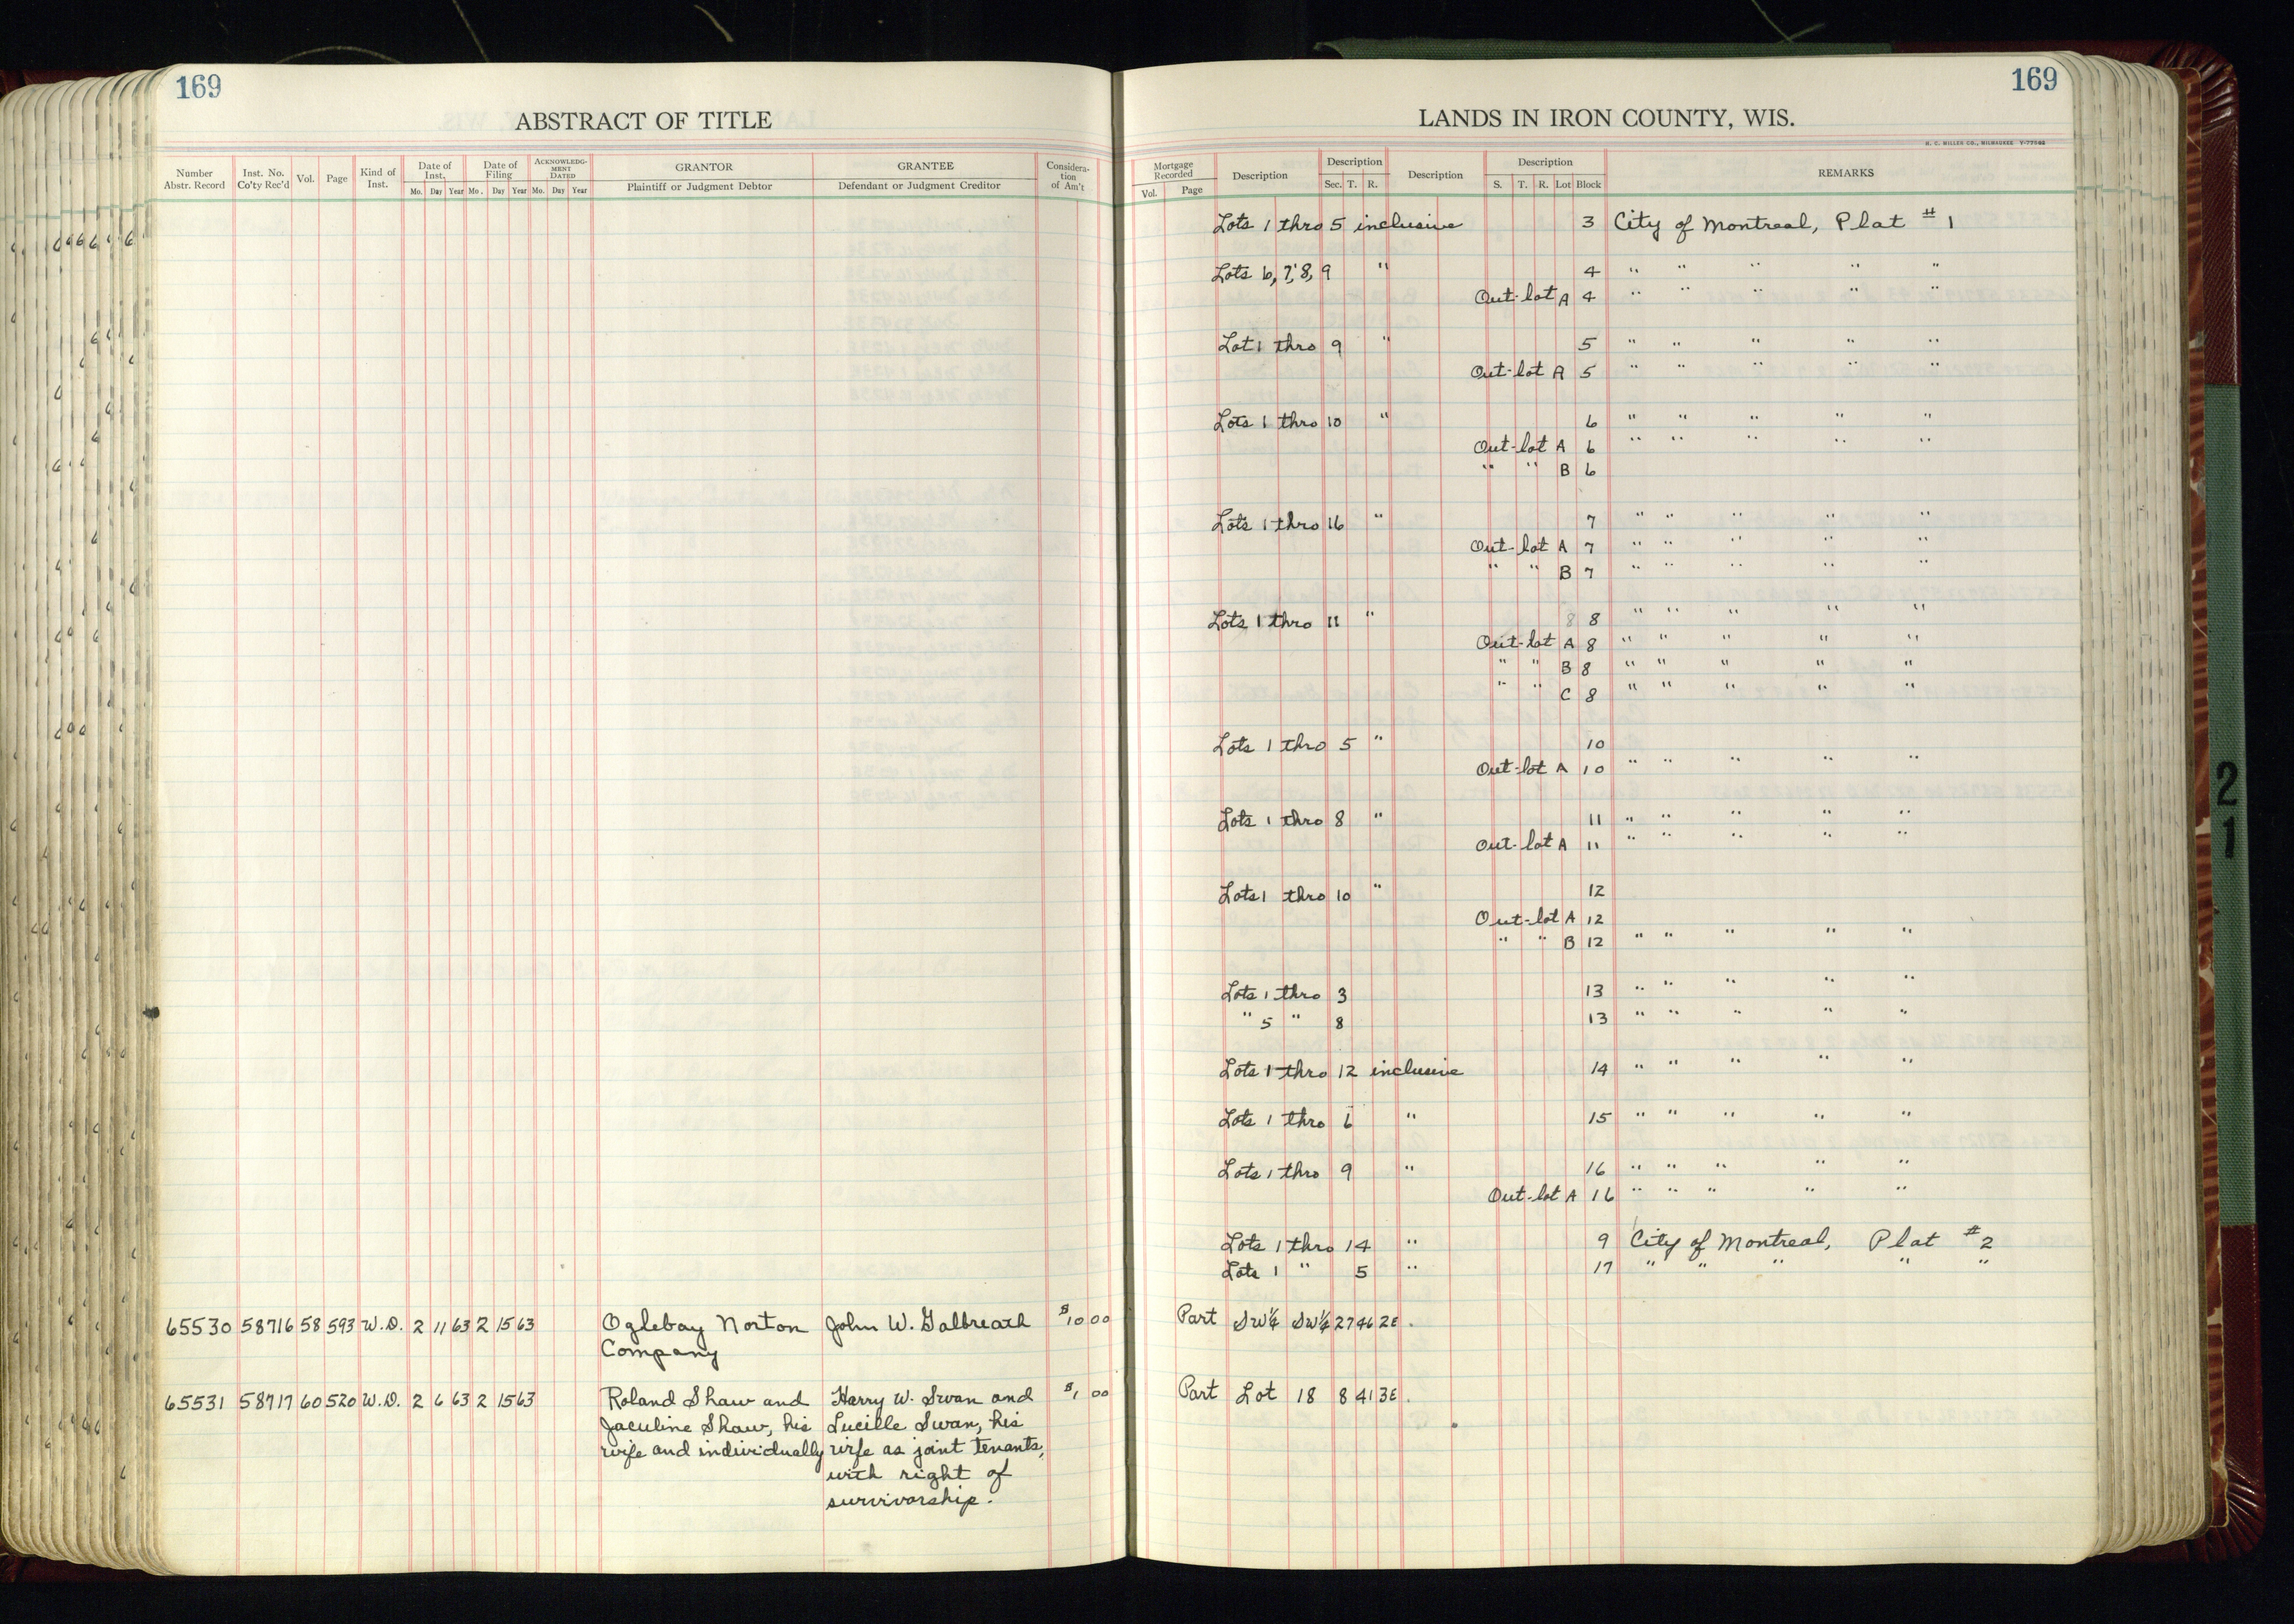 169
ABSTRACT OF TITLE
Number Abstr. Record | Inst. No. Co'ty Rec'd | Vol. | Page | Kind of Inst. | Date of Inst. Mo. Day Year | Date of Filing Mo. Day Year | ACKNOWLEDG-MENT DATED Mo. Day Year | GRANTOR Plaintiff or Judgment Debtor | GRANTEE Defendant or Judgment Creditor | Considera-tion of Am't
65530 58716 58 593 W.D. 2 11 63 2 15 63 Oglebay Norton John W. Galbreath $10 00
Company
65531 58717 60 520 W.D. 2 6 63 2 15 63 Roland Shaw and Harry W. Swan and $1 00
Jaculine Shaw, his Lucille Swan, his
wife and individually wife as joint tenants,
with right of
survivorship.
169
LANDS IN IRON COUNTY, WIS.
H. C. MILLER CO., MILWAUKEE
Mortgage Recorded Vol. Page | Description | Description Sec. T. R. | Description | Description S. T. R. Lot Block | REMARKS
Lots 1 thro 5 inclusive 3 City of Montreal, Plat #1
Lots 6, 7, 8, 9 " 4 " " " " "
Out-lot A 4 " " " " "
Lot 1 thro 9 " 5 " " " " "
Out-lot A 5 " " " " "
Lots 1 thro 10 " 6 " " " " "
Out-lot A 6 " " " " "
" " B 6
Lots 1 thro 16 " 7 " " " " "
Out-lot A 7 " " " " "
" " B 7 " " " " "
Lots 1 thro 11 " 8 8 " " " " "
Out-lot A 8 " " " " "
" " B 8 " " " " "
" " C 8 " " " " "
Lots 1 thro 5 " 10
Out-lot A 10 " " " " "
Lots 1 thro 8 " 11 " " " " "
Out-lot A 11 " " " " "
Lots 1 thro 10 " 12
Out-lot A 12
" " B 12 " " " " "
Lots 1 thro 3 13 " " " " "
" 5 " 8 13 " " " " "
Lots 1 thro 12 inclusive 14 " " " " "
Lots 1 thro 6 " 15 " " " " "
Lots 1 thro 9 " 16 " " " " "
Out-lot A 16 " " " " "
Lots 1 thro 14 " 9 City of Montreal, Plat #2
Lots 1 " 5 " 17 " " " " "
Part SW¼ SW¼ 27 46 2E.
Part Lot 18 8 41 3E.
2
1